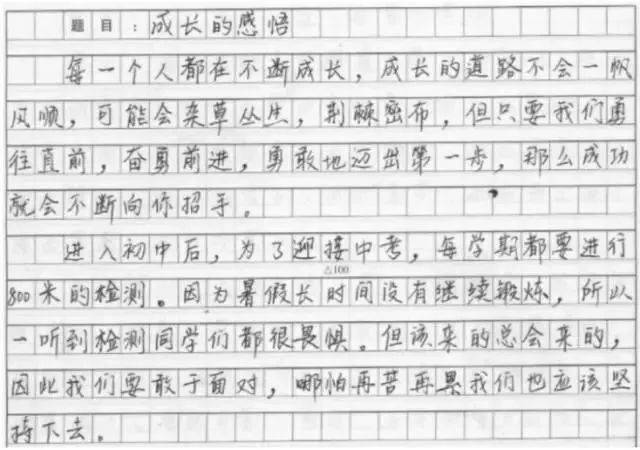 题目：成长的感悟
每一个人都在不断成长，成长的道路不会一帆
风顺，可能会杂草丛生，荆棘密布，但只要我们勇
往直前，奋勇前进，勇敢地迈出第一步，那么成功
就会不断向你招手。
进入初中后，为了迎接中考，每学期都要进行
△100
800米的检测。因为暑假长时间没有继续锻炼，所以
一听到检测同学们都很畏惧。但该来的总会来的，
因此我们要敢于面对，哪怕再苦再累我们也应该坚
持下去。